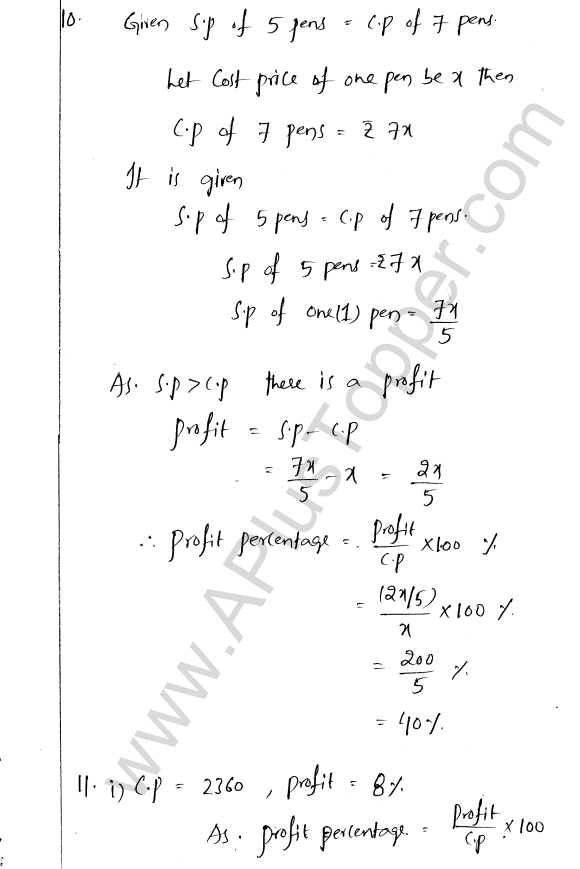 10. Given S.p of 5 pens = C.p of 7 pens.
Let Cost price of one pen be x then
C.p of 7 pens = ₹ 7x
It is given
S.p of 5 pens = C.p of 7 pens.
S.p of 5 pens = ₹7x
S.p of one(1) pen = 7x/5
As. S.p > C.p there is a profit
profit = S.p - C.p
= 7x/5 - x = 2x/5
∴ profit percentage = profit/C.p × 100 %
= (2x/5)/x × 100 %
= 200/5 %
= 40%
11. i) C.p = 2360, profit = 8%
As. profit percentage = profit/C.p × 100
www.APlusTopper.com